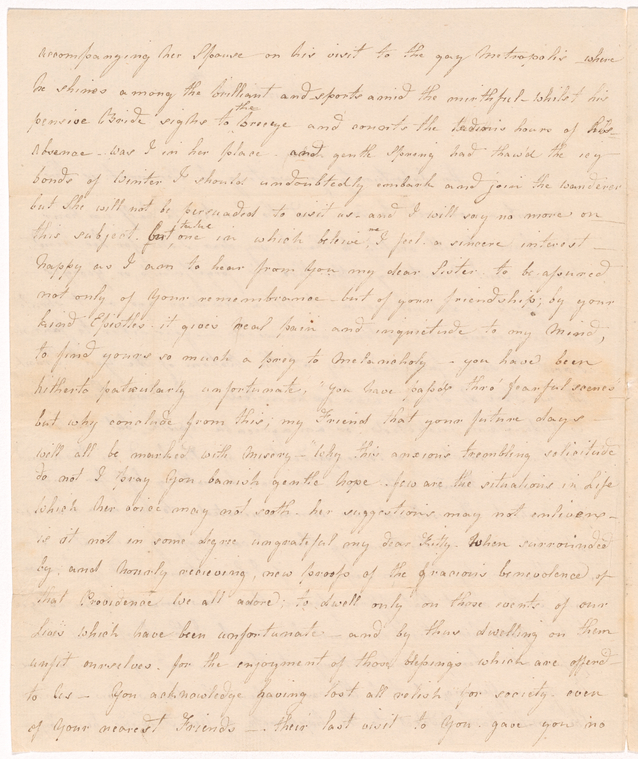 accompanying her Spouse on his visit to the gay Metropolis - where
he shines among the brilliant and sports amid the mirthful - whilst his
pensive Bride sighs to the breeze and counts the tedious hours of his
absence - was I in her place - and gentle Spring had thaw'd the icy
bonds of Winter I should undoubtedly embark and join the wanderer
but she will not be persuaded to visit us - and I will say no more on
this subject. but take one in which believe me I feel a sincere interest -
happy as I am to hear from You my dear Sister to be assured
not only of Your remembrance - but of your friendship; by your
kind Epistles - it gives real pain and inquietude to my Mind,
to find yours so much a prey to Melancholy - you have been
hitherto paticularly unfortunate, you have pass'd thro' fearful scenes
but why conclude from this; my Friend that your future days -
will all be marked with Misery - Why this anxious trembling solicitude
do not I pray You banish gentle hope - few are the situations in Life
which her voice may not sooth - her suggestions may not enliven -
is it not in some degree ungrateful my dear Kitty. When surrounded
by, and hourly recieving, new proofs of the gracious benevolence of
that Providence we all adore; to dwell only on those events of our
Lives which have been unfortunate - and by thus dwelling on them
unfit ourselves - for the enjoyment of those blessings which are offerd
to Us - You acknowledge having lost all relish for society - even
of Your nearest Friends - their last visit to You - gave you no